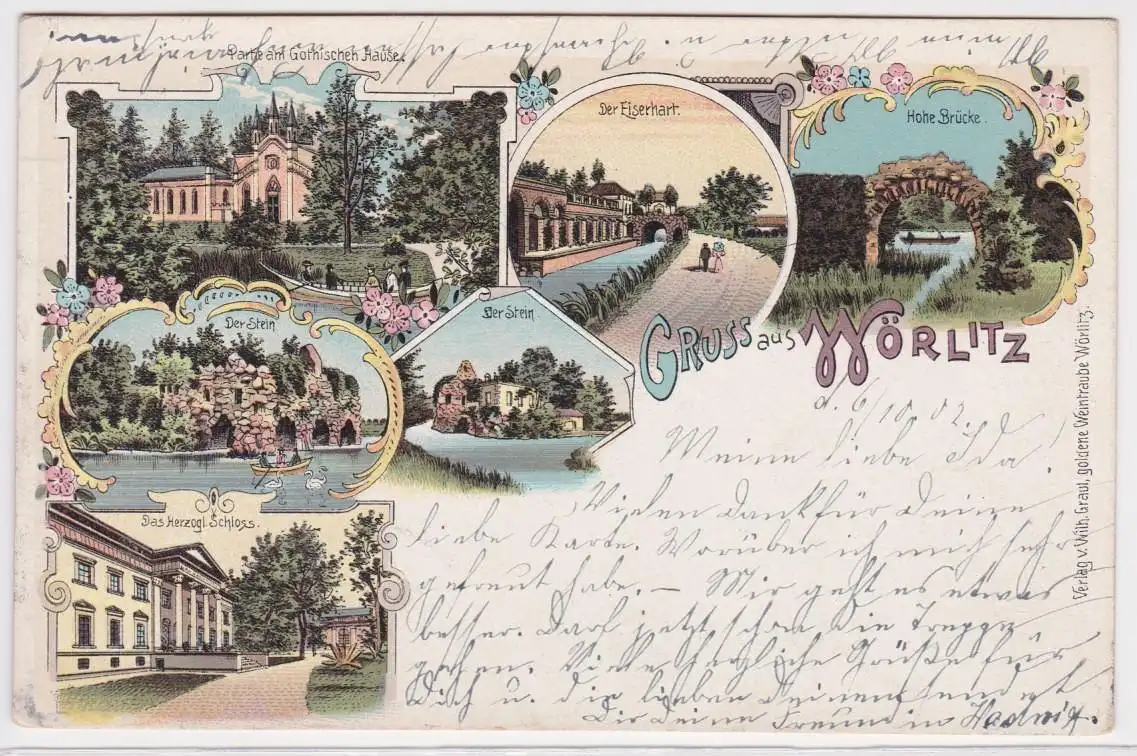 Partie am Gothischen Hause.
Der Eiserhart.
Hohe Brücke.
Der Stein
Der Stein
Das Herzogl. Schloss.
GRUSS aus WÖRLITZ
d. 6/10.02.
Meine liebe Ida!
Vielen Dank für Deine
liebe Karte. Worüber ich mich sehr
gefreut habe. – Mir geht es etwas
besser. Darf jetzt schon die Treppe
gehen. Viele herzliche Grüße für
Dich u. die lieben Deinen sendet
Dir Deine Freundin Hedwig.
Verlag v. Wilh. Graul, goldene Weintraube Wörlitz.